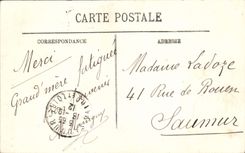 CARTE POSTALE
CORRESPONDANCE
ADRESSE
Merci
Grand'mère fatiguée
Madame Ladoze
41 Rue de Rouen
Saumur